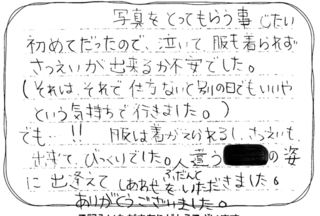 写真をとってもらう事じたい
初めてだったので、泣いて、服も着られず
さつえいが出来るか不安でした。
(それは、それで仕方ないと別の日でもいいや
という気持ちで行きました。)
でも…!! 服は着がえれるし、さつえいも
出来て、びっくりでした。人違う の姿
に出逢えて しあわせをいただきました。
ふだんと
ありがとうございました。